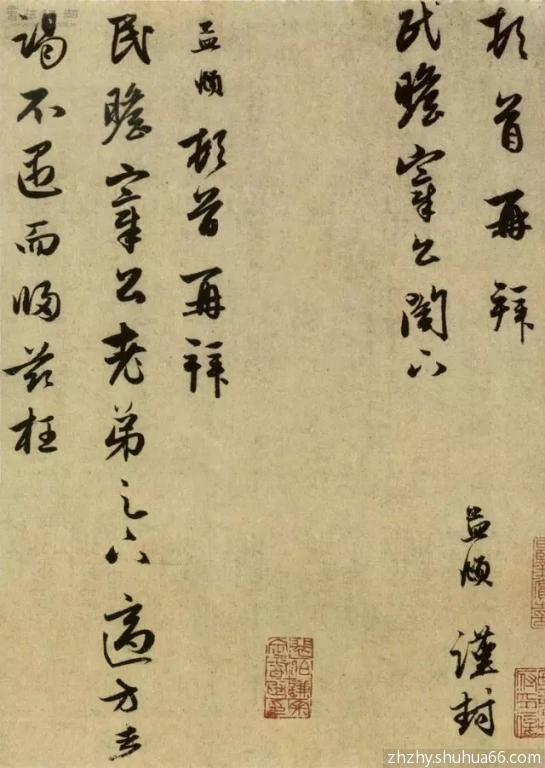 頓首再拜
民瞻宰公閣下
孟頫 謹封
孟頫頓首再拜
民瞻宰公老弟足下適方走
謁不遇而歸茲枉
zhzhy.shuhua66.com